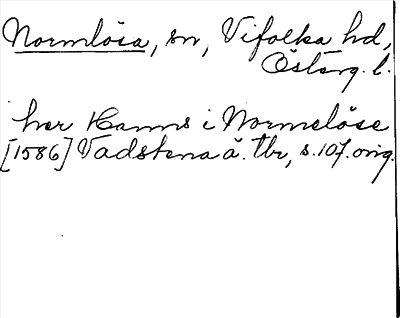 Normlösa, sn, Vifolka hd,
Österg. l.
her Hanns i Normelöse
[1586] Vadstena ä. tbr, s. 107. orig.